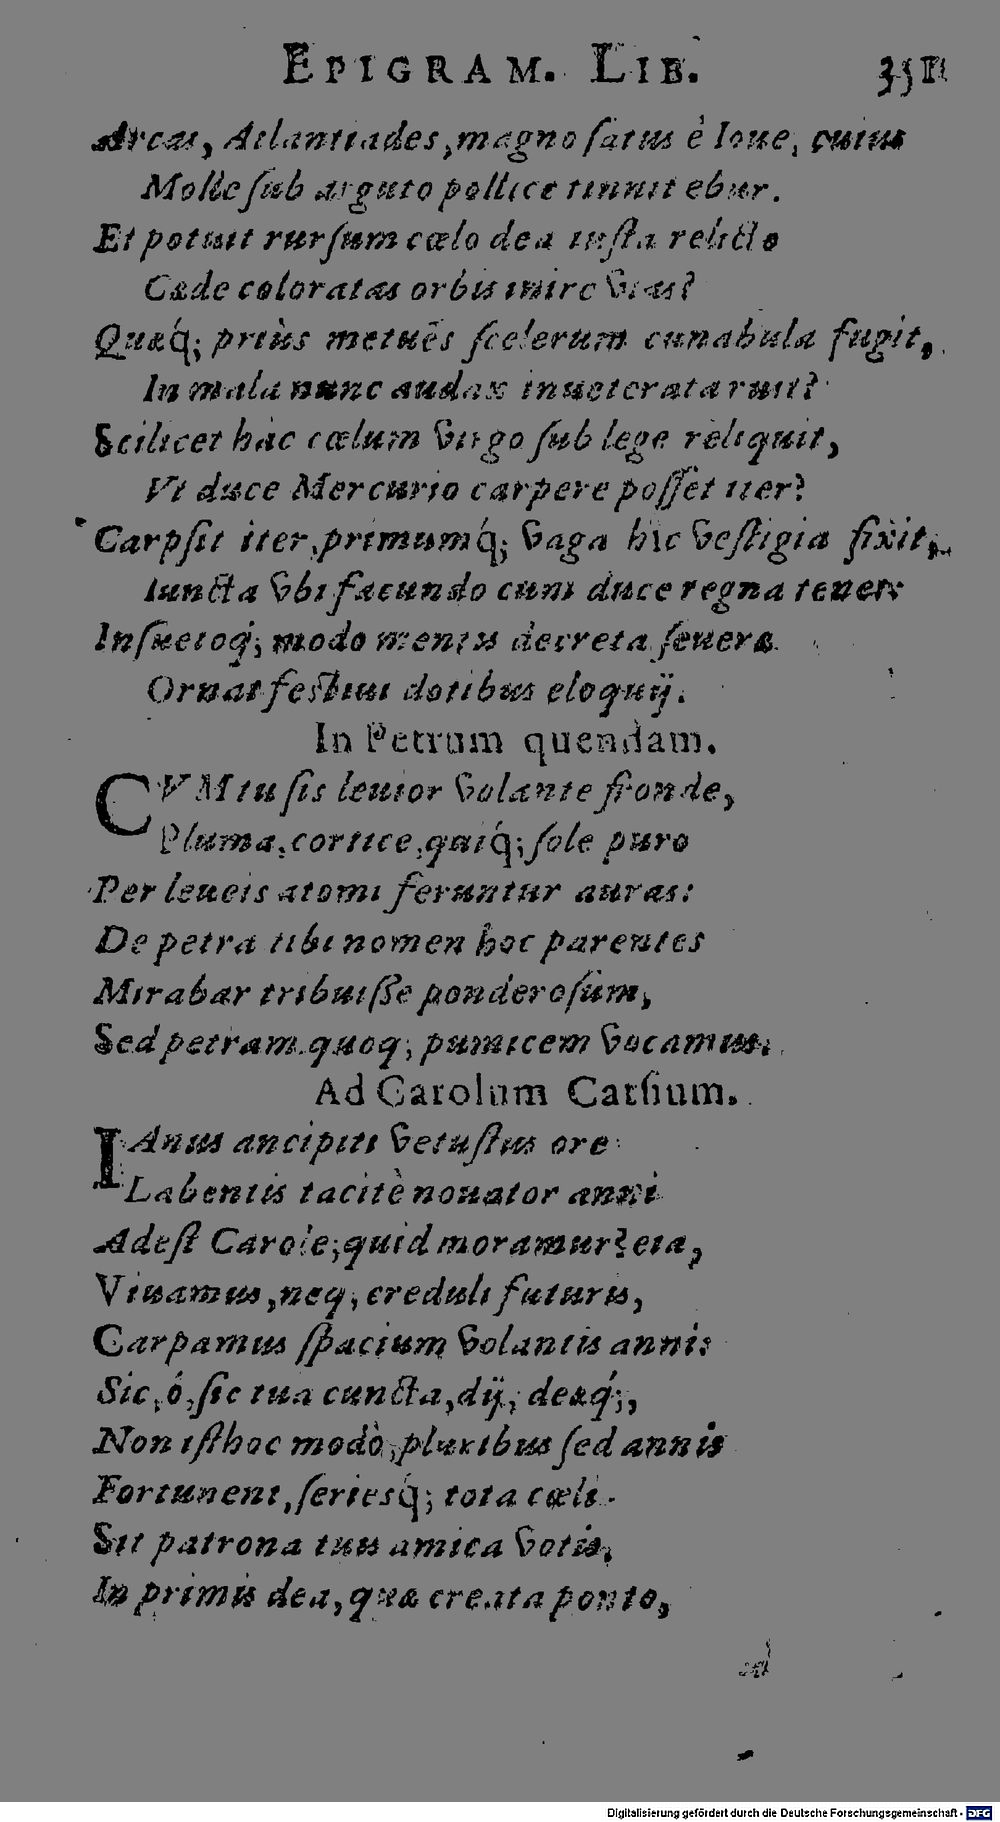 EPIGRAM. LIB. 351
Arcas, Atlantiades, magno ſatus è Ioue, cuius
Molle ſub arguto pollice tinnit ebur.
Et potuit rurſum cœlo dea iuſta relicto
Cæde coloratas orbis inire vias?
Quæq́; priùs metuēs ſcelerum cunabula fugit,
In mala nunc audax inueterata ruit?
Scilicet hàc cœlum virgo ſub lege reliquit,
Vt duce Mercurio carpere poſſet iter?
Carpſit iter, primumq́; vaga hìc veſtigia fixit,
Iuncta vbi facundo cum duce regna tenet:
Inſuetoq́; modo mentis decreta ſeueræ
Ornat feſtiui dotibus eloquij.
In Petrum quendam.
CVM tu ſis leuior volante fronde,
Pluma, cortice, quiq́; ſole puro
Per leueis atomi feruntur auras:
De petra tibi nomen hoc parentes
Mirabar tribuiſſe ponderoſum,
Sed petram quoq; pumicem vocamus.
Ad Carolum Catſium.
IAnus ancipiti vetuſtus ore
Labentis tacitè nouator anni
Adeſt Carole; quid moramur? eia,
Viuamus, neq; creduli futuris,
Carpamus ſpacium volantis anni:
Sic, ó, ſic tua cuncta, dij, deæq́;,
Non iſthoc modò, pluribus ſed annis
Fortunent, ſeriesq́; tota cœli
Sit patrona tuis amica votis,
In primis dea, quæ creata ponto,
Digitalisierung gefördert durch die Deutsche Forschungsgemeinschaft - DFG